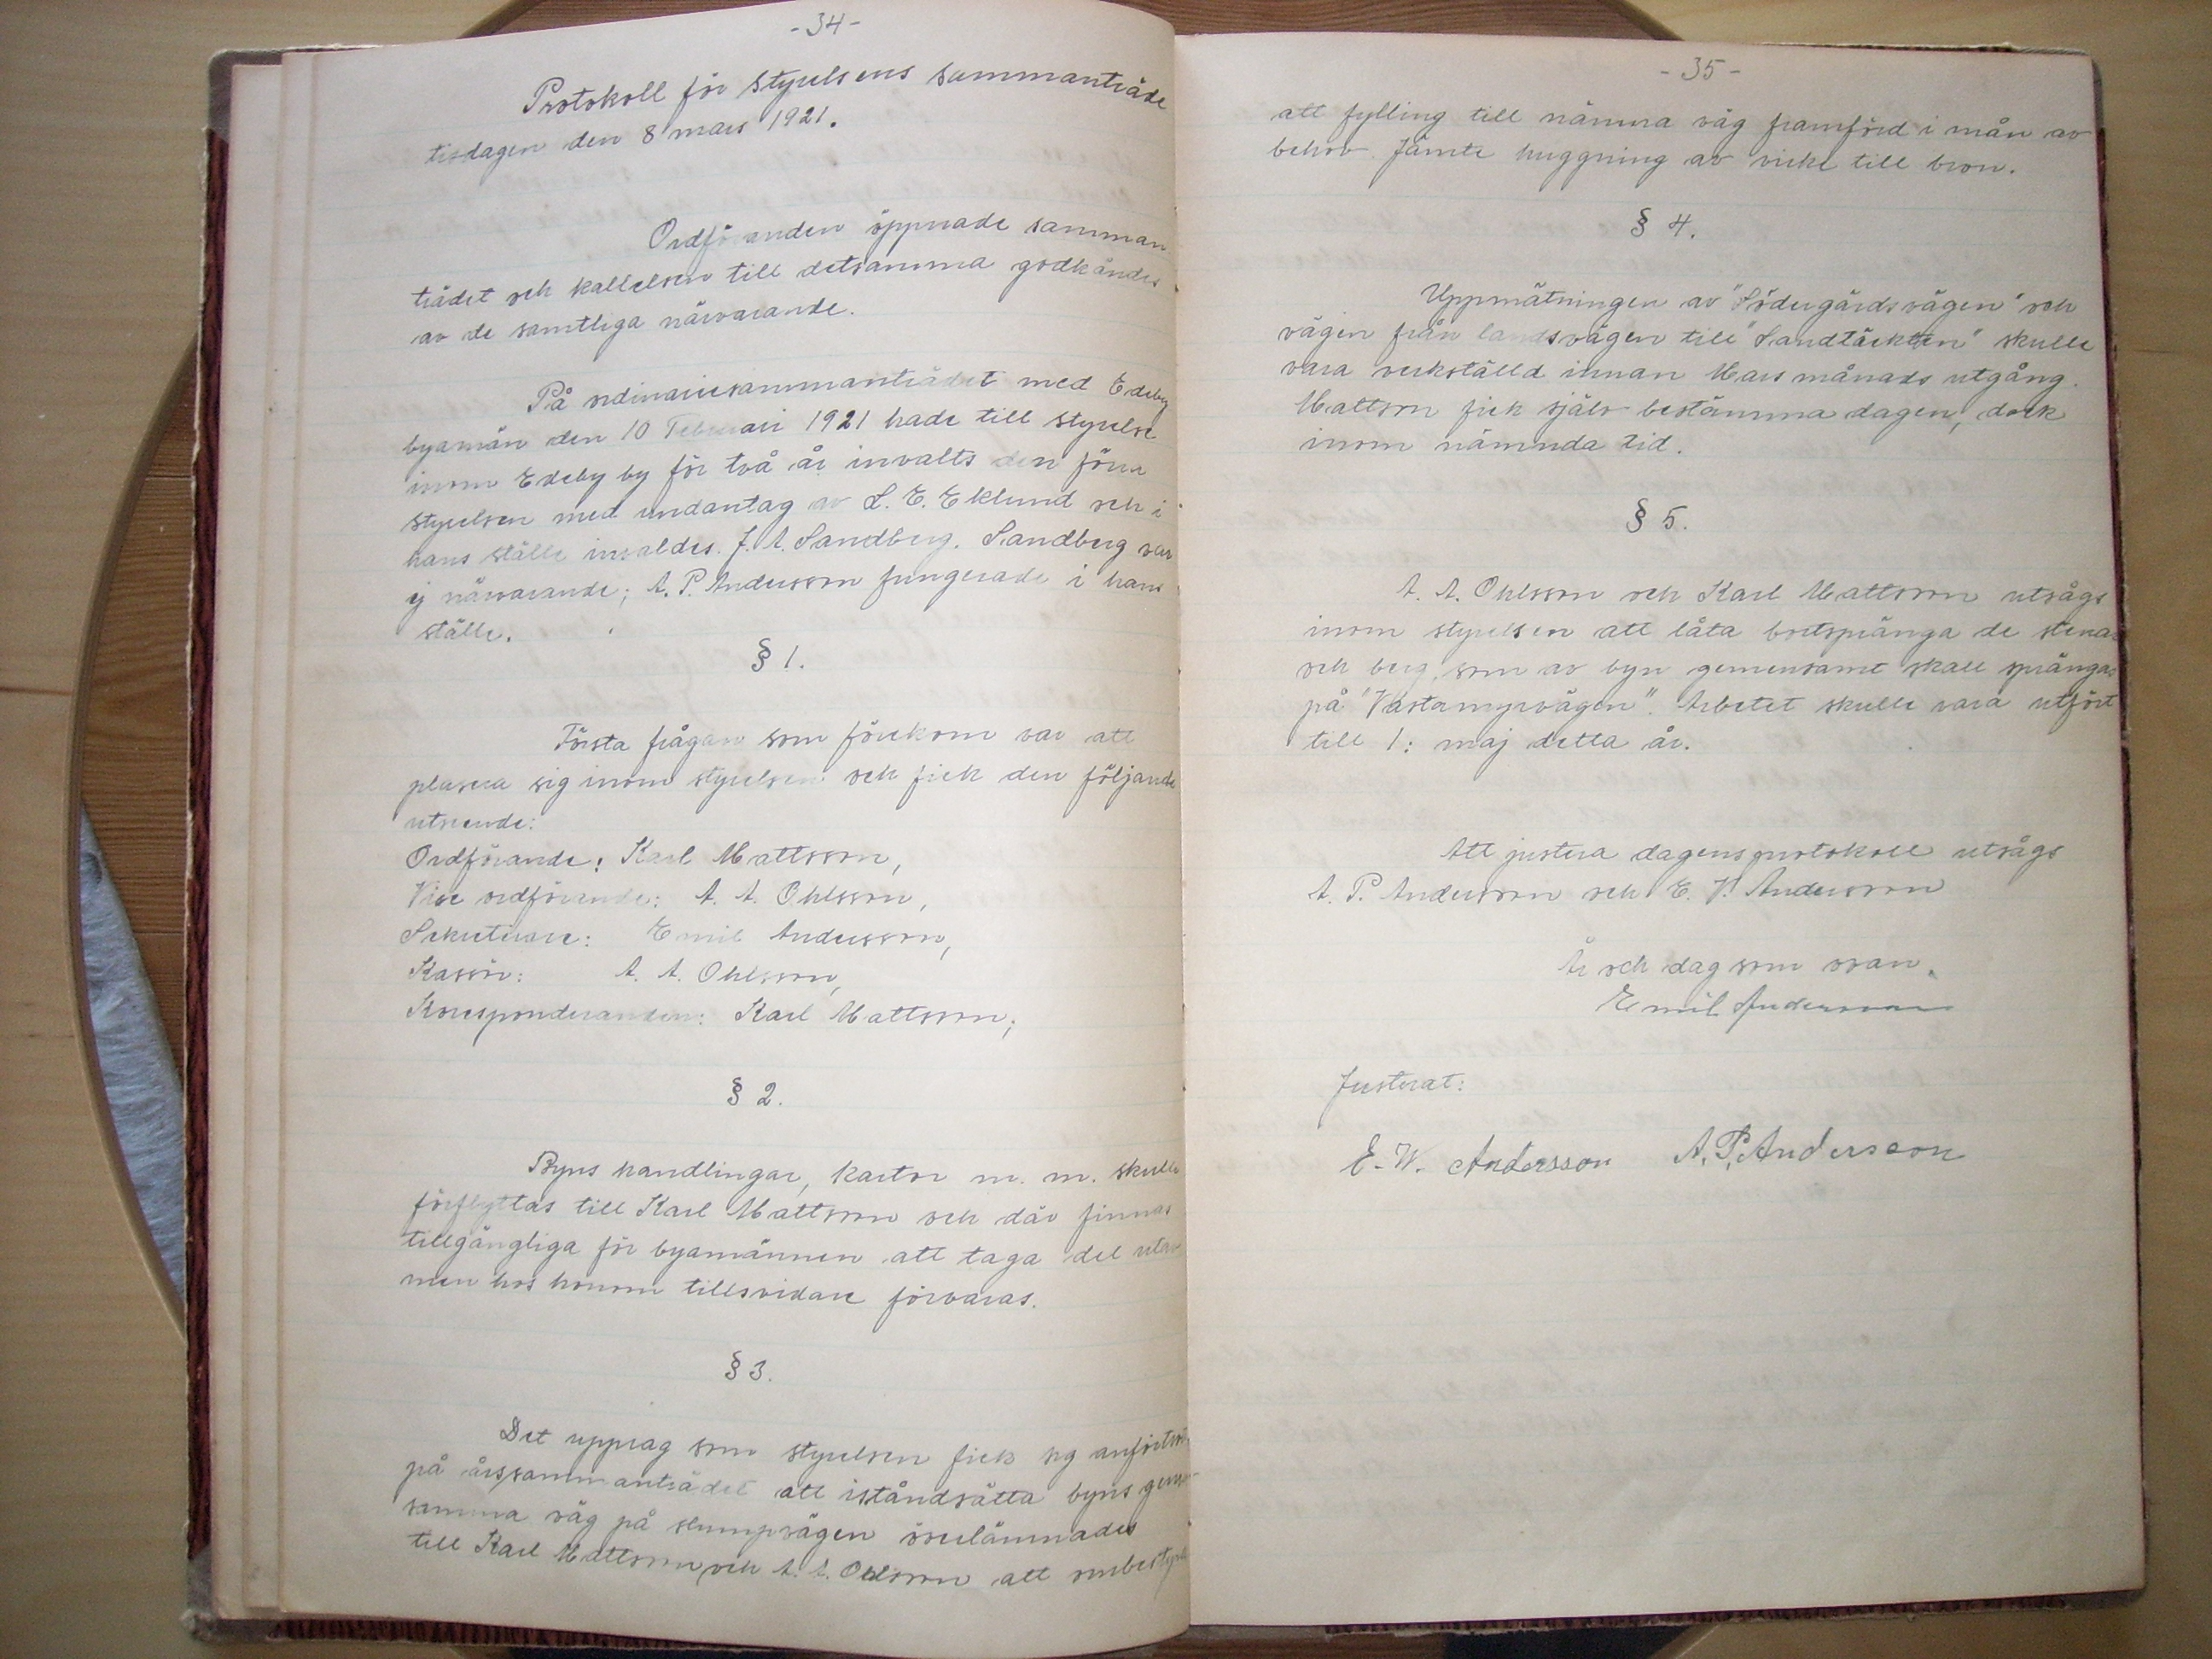 -34-
Protokoll för Styrelsens sammanträde
tisdagen den 8 mars 1921.
Ordföranden öppnade samman
trädet och kallelsen till detsamma godkändes
av de samtliga närvarande.
På ordinariesammanträdet med Edeby
byamän den 10 Februari 1921 hade till styrelse
inom Edeby by för två år invalts den förra
styrelsen med undantag av L. E. Eklund och i
hans ställe invaldes J. A. Sandberg. Sandberg var
ej närvarande; A. P. Andersson fungerade i hans
ställe.
§ 1.
Första frågan som förekom var att
plasera sig inom styrelsen och fick den följande
utseende:
Ordförande: Karl Mattsson,
Vice ordförande: A. A. Ohlsson,
Sekreterare: Emil Andersson,
Kassör: A. A. Ohlsson,
Koresponderanden: Karl Mattsson;
§ 2.
Byns handlingar, kartor m. m. skulle
förflyttas till Karl Mattsson och där finnas
tillgängliga för byamännen att taga del utav
men hos honom tillsvidare förvaras.
§ 3.
Det uppdrag som styrelsen fick sig
på årssammanträdet att iståndsätta byns gemen-
samma väg på slumpvägen överlämnades
till Karl Mattsson och A. A. Ohlsson att ombestyra
-35-
att fylling till nämna väg framförd i mån av
behov jämte huggning av virke till bron.
§ 4.
Uppmätningen av "Södergårdsvägen" och
vägen från landsvägen till "Sandtäckten" skulle
vara verkställd innan Mars månads utgång.
Mattson fick själv bestämma dagen, dock
inom nämnda tid.
§ 5.
A. A. Ohlsson och Karl Mattsson utsågs
inom styrelsen att låta bortspränga de stenar
och berg, som av byn gemensamt skall sprängas
på "Västamyrvägen". Arbetet skulle vara utfört
till 1: maj detta år.
Att justera dagens protokoll utsågs
A. P. Andersson och E. V. Andersson
År och dag som ovan.
Emil Andersson
Justerat:
E. W. Andersson A. P. Andersson